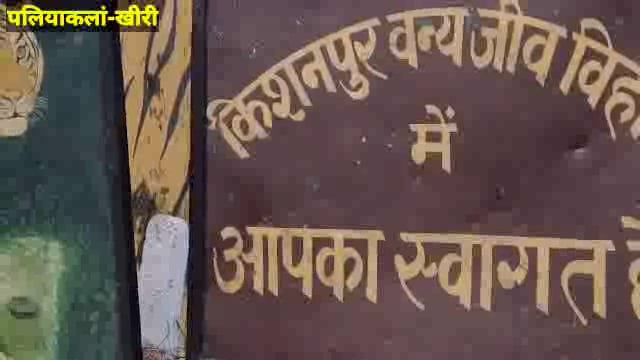 पलियाकलां-खीरी
किशनपुर वन्य जीव विहा
में
आपका स्वागत है